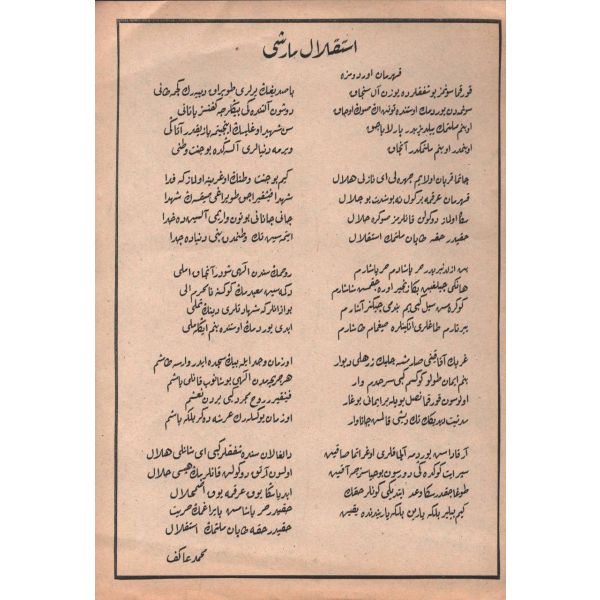 استقلال مارشى
قهرمان اوردومزه
قورقما سونمز بو شفقلرده يوزن آل سنجاق
سونمه دن يوردمك اوستنده توتن اك صوك اوجاق
او بنم ملتمك ييلديزيدر پارلاياجق
او بنمدر او بنم ملتمكدر آنجاق
چاتما قربان اولايم چهره كى اى نازلى هلال
قهرمان عرقمه بر كول نه بو شدت بو جلال
سكا اولماز دوكولن قانلرمز صوكره حلال
حقيدر حقه طاپان ملتمك استقلال
بن ازلدنبريدر حر ياشادم حر ياشارم
هانكى چيلغين بكا زنجير اوره جقمش شاشارم
كوكره مش سيل كبى يم بندمى چيكنر آشارم
ييرتارم طاغلرى انكينلره صيغمام طاشارم
غربك آفاقنى صارمشسه چليك زرهلى ديوار
بنم ايمان طولو كوكسم كبى سرحدم وار
اولوسون قورقما ناصل بويله بر ايمانى بوغار
مدنيت ديديكك تك ديشى قالمش جاناوار
آرقاداش يوردمه آلچاقلرى اوغراتما صاقين
سپر ايت كوكده كى دورسون بو حياسزجه آقين
طوغاجقدر سكا وعد ايتديكى كونلر حقك
كيم بيلير بلكه يارين بلكه ياريندنده يقين
باصديغك يرلرى طوپراق دييه رك كچمه طانى
دوشون آلتنده كى بيكلرجه كفنسز ياتانى
سن شهيد اوغليسك اينجيتمه يازيقدر آتاكى
ويرمه دنيالرى آلسه كده بو جنت وطنى
كيم بو جنت وطنك اوغرينه اولماز كه فدا
شهدا فيشقيراجق طوپراغى صيقسه ك شهدا
جانى جانانى بوتون واريمى آلسين ده خدا
ايتمه سين تك وطنمدن بنى دنياده جدا
روحمك سندن الهى شودر آنجاق املى
دكمه سين معبدمك كوكسنه نامحرم الى
بو اذانلر كه شهادتلرى دينك تملى
ابدى يوردمك اوستنده بنم ايكله ملى
او زمان وجد ايله بيك سجده ايدر وارسه طاشم
هر جريحه مدن الهى بوشانوب قانلى ياشم
فيشقيرر روح مجرد كبى يردن نعشم
او زمان يوكسلرك عرشه دكر بلكه باشم
دالغالان سنده شفقلر كبى اى شانلى هلال
اولسون آرتق دوكولن قانلرمك هپسى حلال
ابديا سكا يوق عرقمه يوق اضمحلال
حقيدر حر ياشامش بايراغمك حريت
حقيدر حقه طاپان ملتمك استقلال
محمد عاكف